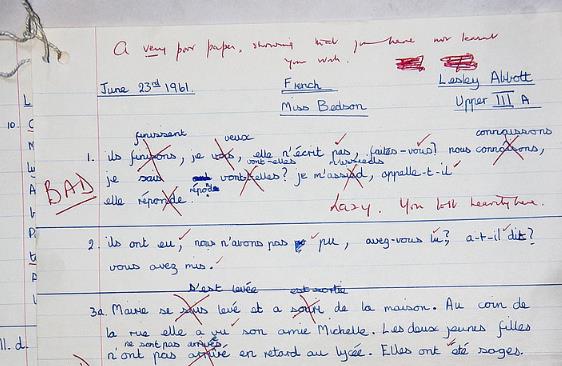 A very poor paper, showing that you have not learnt
your work.
June 23rd 1961. French Lesley Abbott
Miss Bedson Upper III A
L
10. C
finissent veux connaissons
1. ils finirons, je vois, elle n'écrit pas, faites-vous? nous connaisons,
vont-elles m'assieds
je sais vont-elles? je m'assied, appelle-t-il
répond
elle réponde.
BAD
Lazy. You lost heavily here.
2. ils ont eu, nous n'avons pas pu, avez-vous lu? a-t-il dit?
vous avez mis.
s'est levée est sortie
3a. Marie se levé et a de la maison. Au coin de
la rue elle a vu son amie Michelle. Les deux jeunes filles
ne sont pas arrivés
11. d. n'ont pas arrivé en retard au lycée. Elles ont été sages.